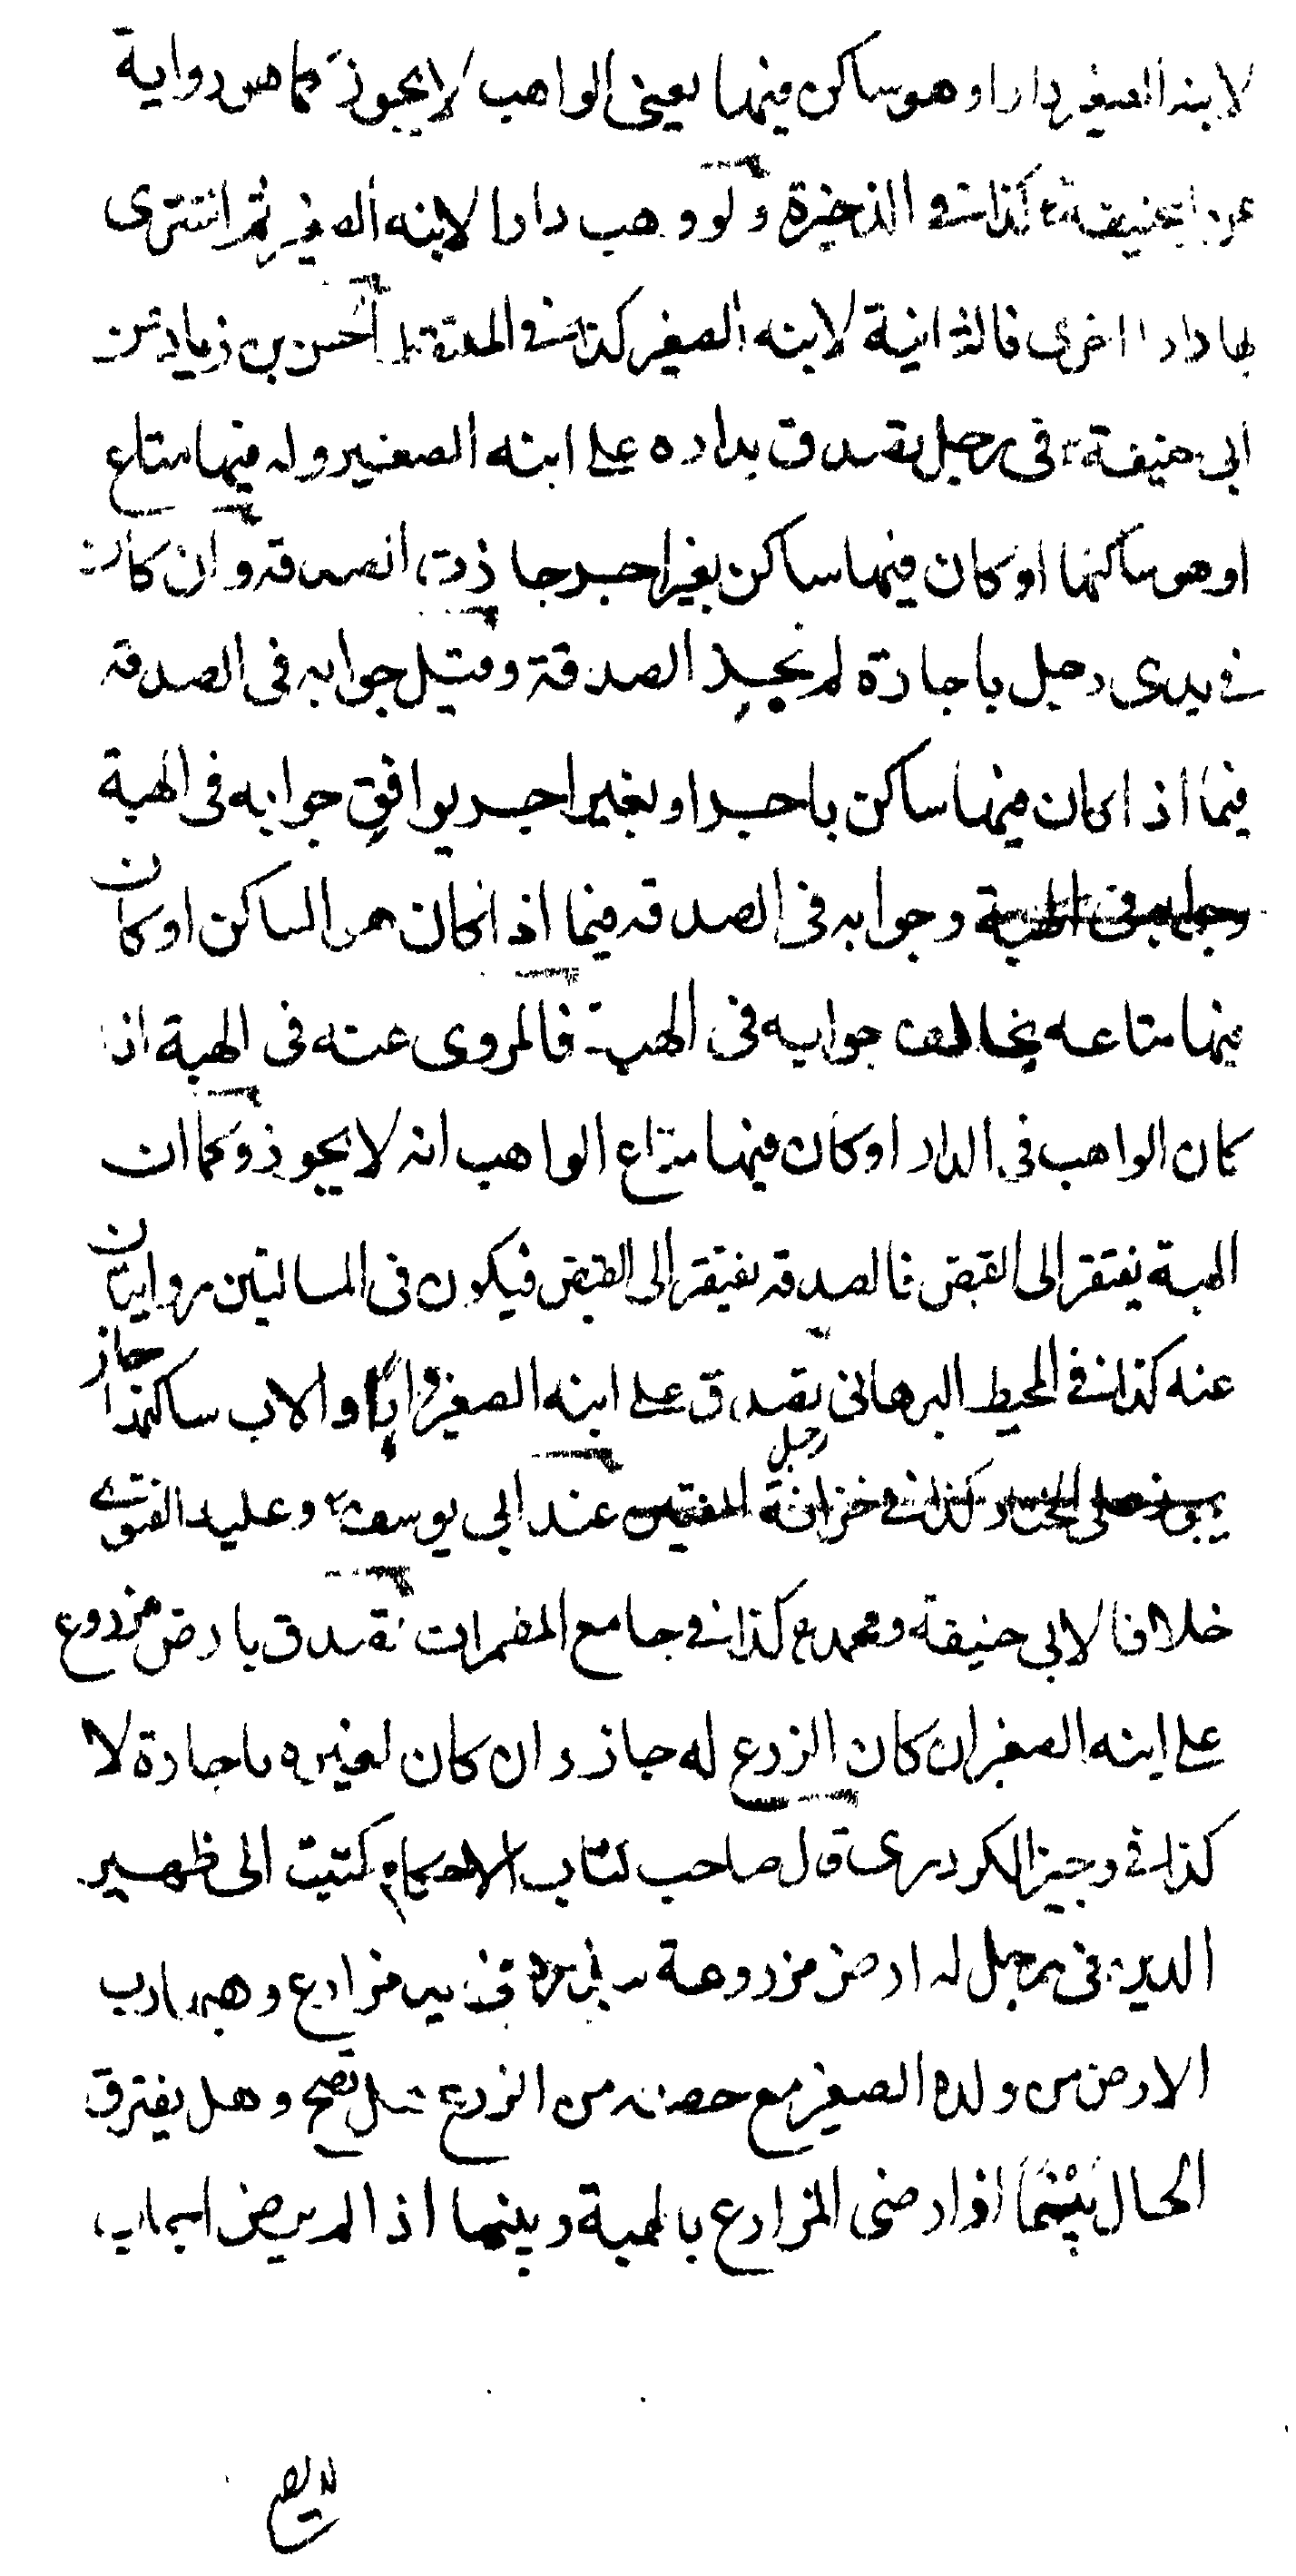 لابنه الصغير دارا وهو ساكن فيها يعنى الواهب لا يجوز كما هو رواية
عن ابى حنيفة كذا فى الذخيرة ولو وهب دارا لابنه الصغير ثم اشترى
بها دارا اخرى فالثانية لابنه الصغير كذا فى الملتقط الحسن بن زياد عن
ابى حنيفة فى رجل تصدق بداره على ابنه الصغير وله فيها متاع
او هو ساكنها او كان فيها ساكن بغير اجر جازت الصدقة وان كان
فى يدى رجل باجارة لم تجز الصدقة وقيل جوابه فى الصدقة
فيما اذا كان فيها ساكن باجر او بغير اجر يوافق جوابه فى الهبة
وجوابه فى الهبة وجوابه فى الصدقه فيما اذا كان هو الساكن او كان
فيها متاعه يخالف جوابه فى الهبة فالمروى عنه فى الهبة اذا
كان الواهب فى الدار او كان فيها متاع الواهب انه لا يجوز وكما ان
الهبة يفتقر الى القبض فالصدقه يفتقر الى القبض فيكون فى المسالتين روايتان
عنه كذا فى المحيط البرهانى تصدق على ابنه الصغير دارا والاب ساكنها جاز
رجل
يجوز على المختار كذا فى خزانة المفتين عند ابى يوسف وعليه الفتوى
خلافا لابى حنيفة ومحمد كذا فى جامع المضمرات تصدق بارض مزروع
على ابنه الصغير ان كان الزرع له جاز وان كان لغيره باجارة لا
كذا فى وجيز الكردرى قال صاحب كتاب الاحكام كتبت الى ظهير
الدين فى رجل له ارض مزروعة فى يد مزارع وهب رب
الارض من ولده الصغير مع حصته من الزرع هل تصح وهل يفترق
الحال بينما اذا رضى المزارع بالهبة وبينما اذا لم يرض اجاب
لا يصح